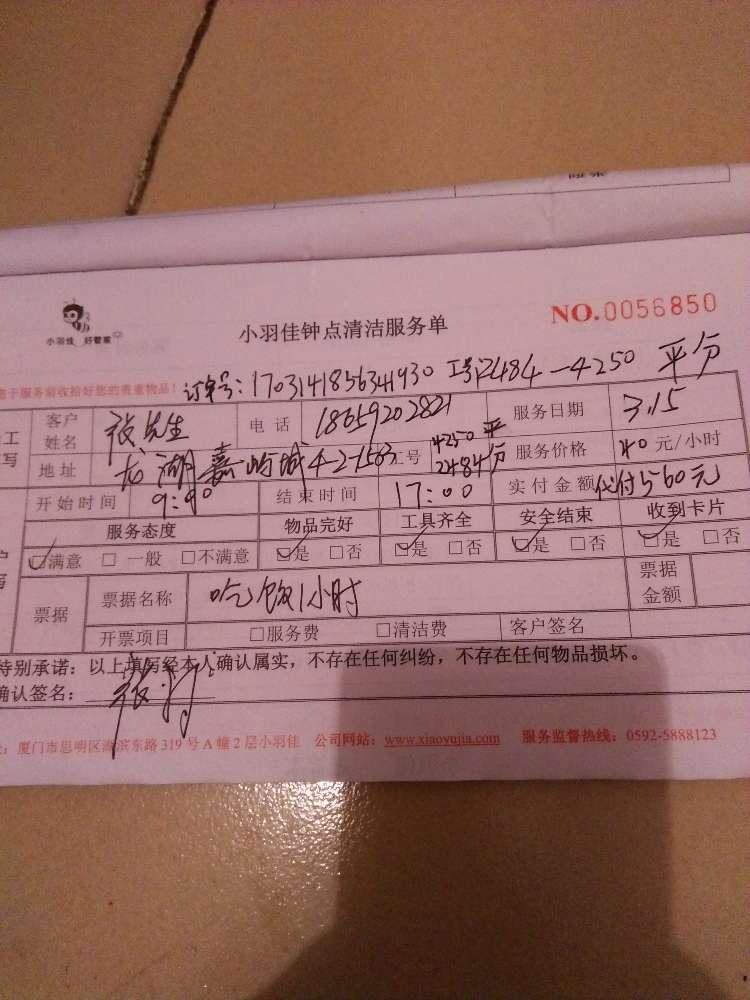 小羽佳 好管家
小羽佳钟点清洁服务单
NO.0056850
于服务前收拾好您的贵重物品！ 订单号：1703141856341930 工号2484—4250 平分
客户姓名 张先生 电话 18659202821 服务日期 3.15
地址 龙湖嘉屿城4-2-1503 工号 4250平 2484分 服务价格 40元/小时
开始时间 9:00 结束时间 17:00 实付金额 代付560元
服务态度 物品完好 工具齐全 安全结束 收到卡片
☑满意 □一般 □不满意 ☑是 □否 ☑是 □否 ☑是 □否 ☑是 □否
票据 票据名称 吃饭1小时 票据金额
开票项目 □服务费 □清洁费 客户签名
特别承诺：以上填写经本人确认属实，不存在任何纠纷，不存在任何物品损坏。
确认签名：
厦门市思明区湖滨东路319号A幢2层小羽佳 公司网站：www.xiaoyujia.com 服务监督热线：0592-5888123